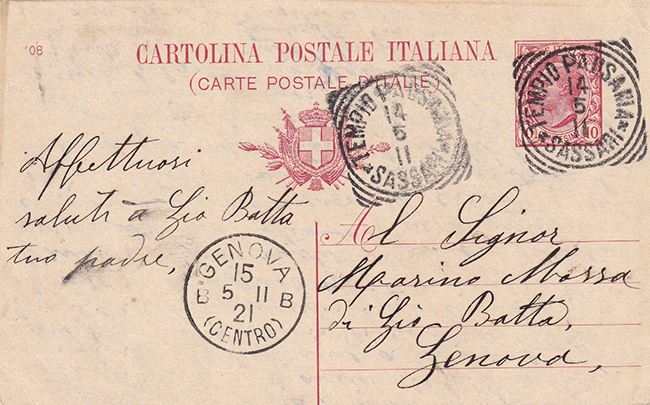 '08
CARTOLINA POSTALE ITALIANA
(CARTE POSTALE D'ITALIE)
TEMPIO PAUSANIA
14
5
11
SASSARI
TEMPIO PAUSANIA
14
5
11
SASSARI
10
Affettuosi
saluti a Gio Batta
tuo padre,
GENOVA
15
B 5 11 B
21
(CENTRO)
Al Signor
Marino Massa
di Gio Batta,
Genova,